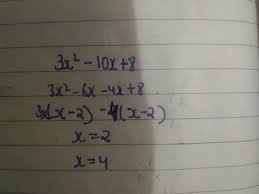 3x² - 10x + 8
3x² - 6x - 4x + 8
3x(x - 2) - 4(x - 2)
x = 2
x = 4